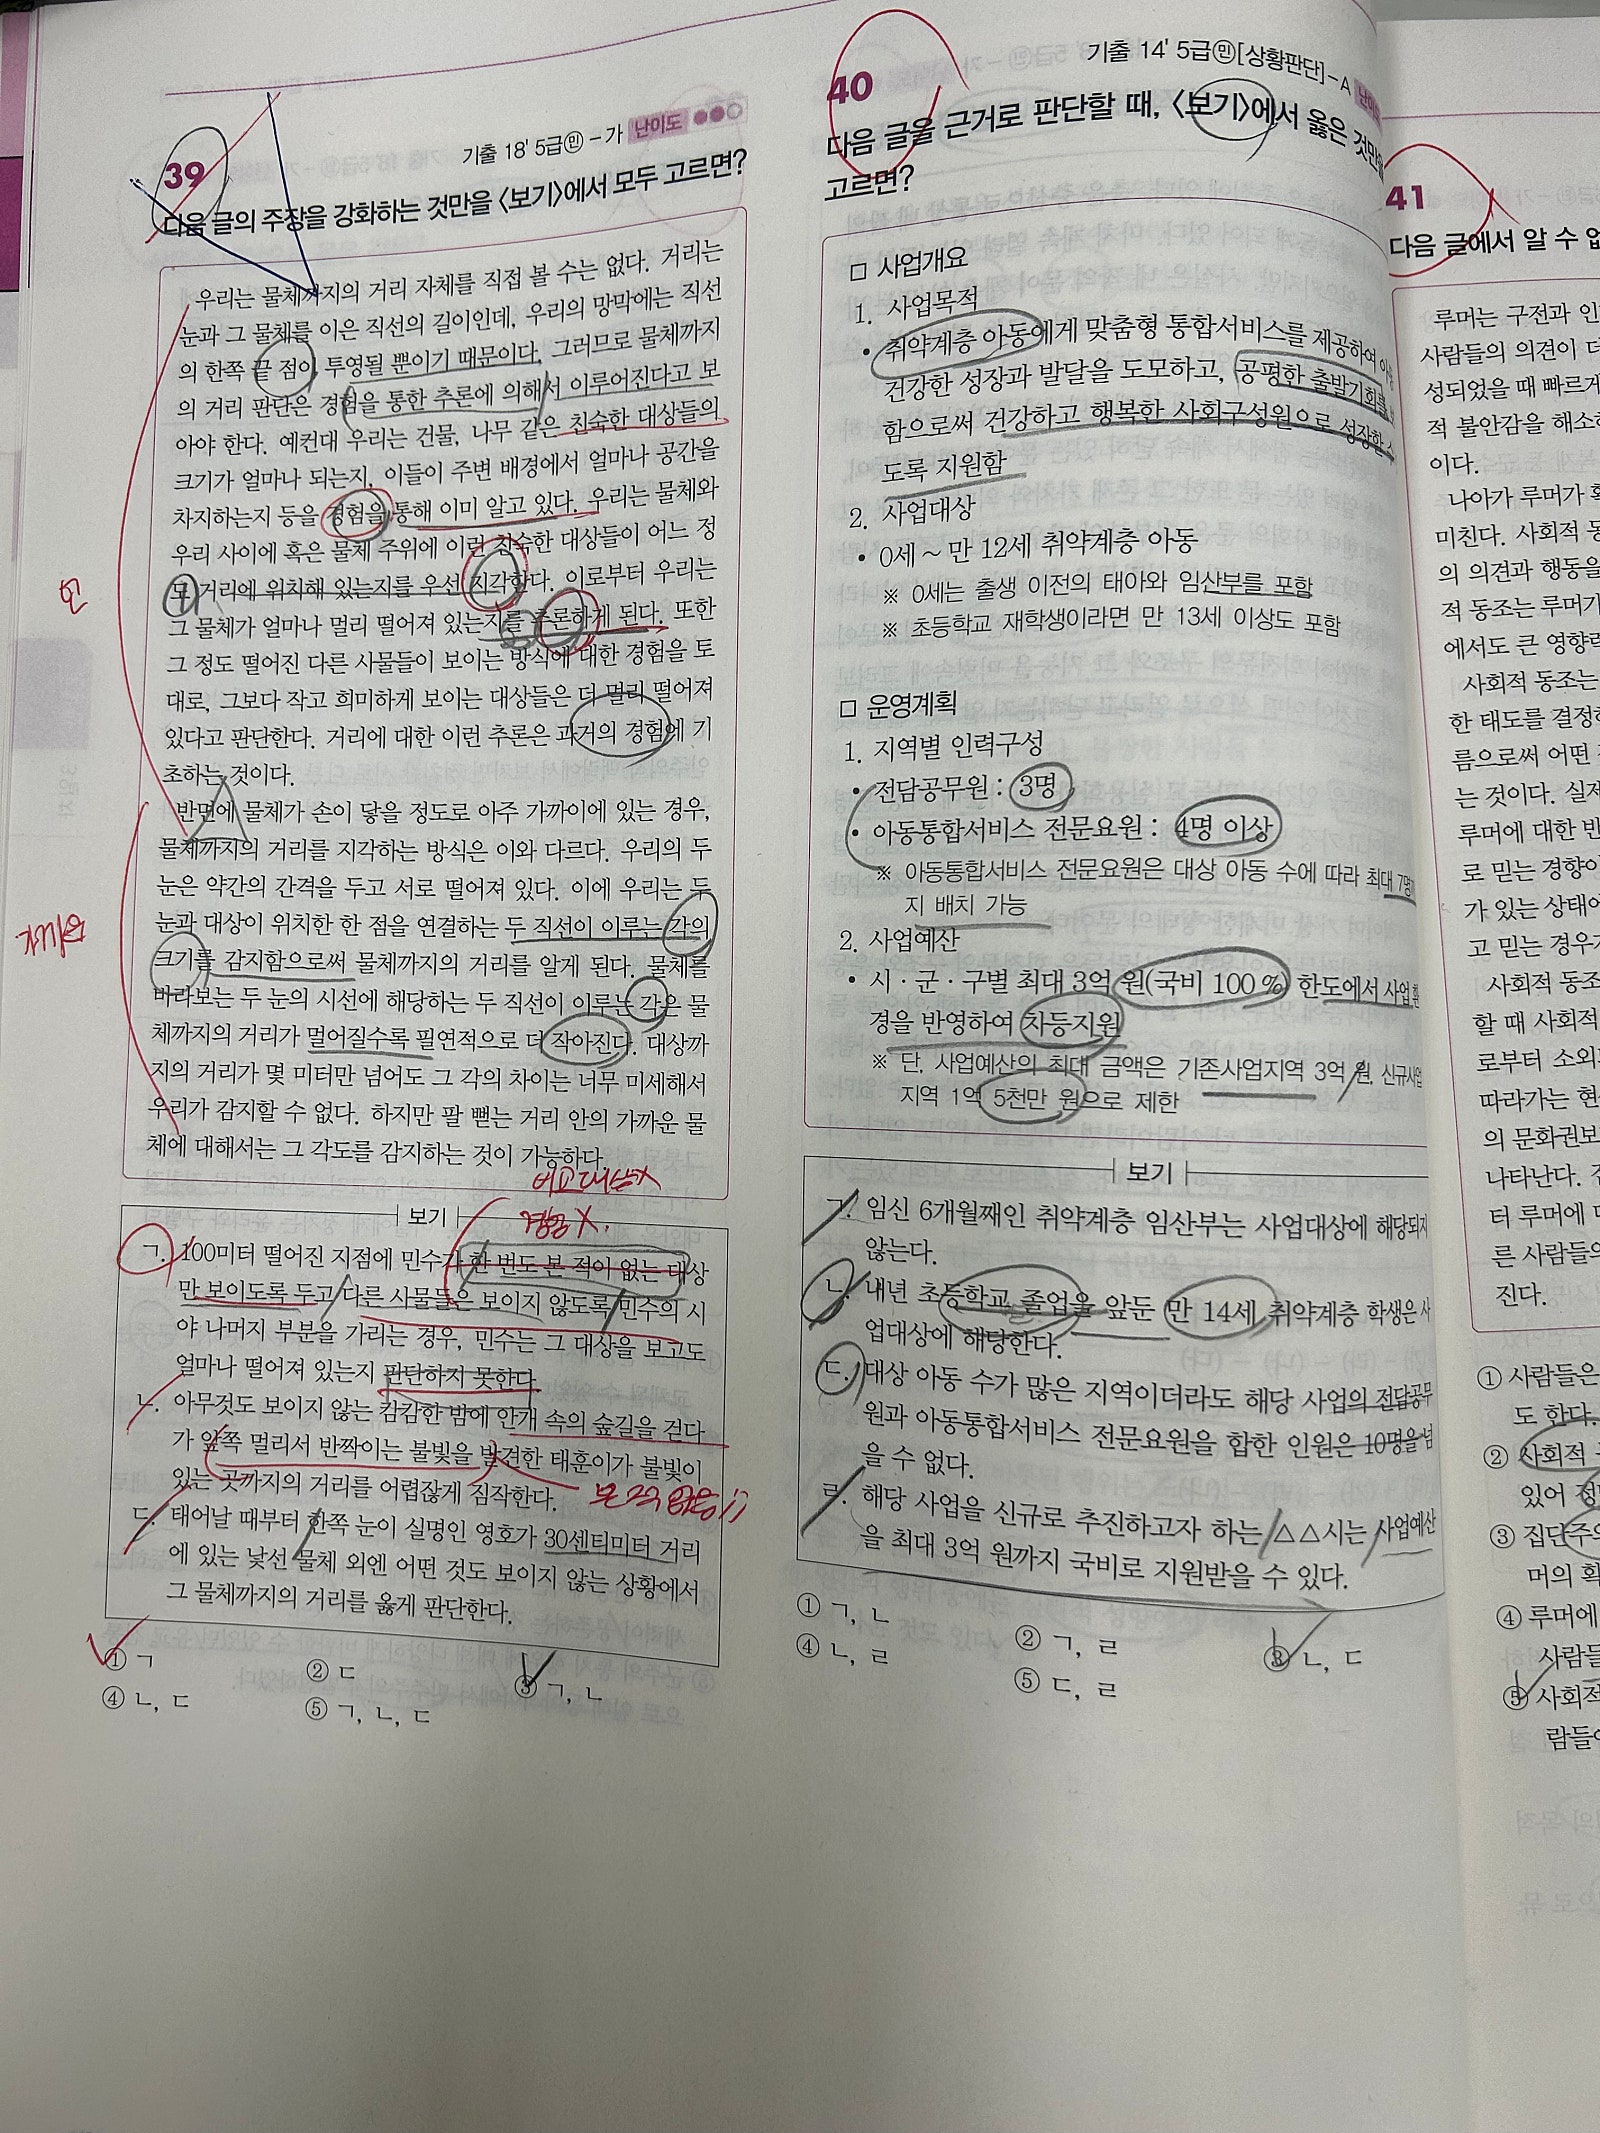 39
기출 18' 5급㉤ - 가 난이도 ●●○
다음 글의 주장을 강화하는 것만을 <보기>에서 모두 고르면?
우리는 물체까지의 거리 자체를 직접 볼 수는 없다. 거리는
눈과 그 물체를 이은 직선의 길이인데, 우리의 망막에는 직선
의 한쪽 끝 점이 투영될 뿐이기 때문이다. 그러므로 물체까지
의 거리 판단은 경험을 통한 추론에 의해서 이루어진다고 보
아야 한다. 예컨대 우리는 건물, 나무 같은 친숙한 대상들의
크기가 얼마나 되는지, 이들이 주변 배경에서 얼마나 공간을
차지하는지 등을 경험을 통해 이미 알고 있다. 우리는 물체와
우리 사이에 혹은 물체 주위에 이런 친숙한 대상들이 어느 정
도 거리에 위치해 있는지를 우선 지각한다. 이로부터 우리는
그 물체가 얼마나 멀리 떨어져 있는지를 추론하게 된다. 또한
그 정도 떨어진 다른 사물들이 보이는 방식에 대한 경험을 토
대로, 그보다 작고 희미하게 보이는 대상들은 더 멀리 떨어져
있다고 판단한다. 거리에 대한 이런 추론은 과거의 경험에 기
초하는 것이다.
반면에 물체가 손이 닿을 정도로 아주 가까이에 있는 경우,
물체까지의 거리를 지각하는 방식은 이와 다르다. 우리의 두
눈은 약간의 간격을 두고 서로 떨어져 있다. 이에 우리는 두
눈과 대상이 위치한 한 점을 연결하는 두 직선이 이루는 각의
크기를 감지함으로써 물체까지의 거리를 알게 된다. 물체를
바라보는 두 눈의 시선에 해당하는 두 직선이 이루는 각은 물
체까지의 거리가 멀어질수록 필연적으로 더 작아진다. 대상까
지의 거리가 몇 미터만 넘어도 그 각의 차이는 너무 미세해서
우리가 감지할 수 없다. 하지만 팔 뻗는 거리 안의 가까운 물
체에 대해서는 그 각도를 감지하는 것이 가능하다.
먼
가까움
비교대상X
경험X,
보기
ㄱ. 100미터 떨어진 지점에 민수가 한 번도 본 적이 없는 대상
만 보이도록 두고 다른 사물들은 보이지 않도록 민수의 시
야 나머지 부분을 가리는 경우, 민수는 그 대상을 보고도
얼마나 떨어져 있는지 판단하지 못한다.
ㄴ. 아무것도 보이지 않는 캄캄한 밤에 안개 속의 숲길을 걷다
가 앞쪽 멀리서 반짝이는 불빛을 발견한 태훈이가 불빛이
있는 곳까지의 거리를 어렵잖게 짐작한다.
ㄷ. 태어날 때부터 한쪽 눈이 실명인 영호가 30센티미터 거리
에 있는 낯선 물체 외엔 어떤 것도 보이지 않는 상황에서
그 물체까지의 거리를 옳게 판단한다.
① ㄱ ② ㄷ ③ ㄱ, ㄴ
④ ㄴ, ㄷ ⑤ ㄱ, ㄴ, ㄷ
40
기출 14' 5급㉤[상황판단] - A
다음 글을 근거로 판단할 때, <보기>에서 옳은 것만을
고르면?
□ 사업개요
1. 사업목적
• 취약계층 아동에게 맞춤형 통합서비스를 제공하여
건강한 성장과 발달을 도모하고, 공평한 출발기회를
함으로써 건강하고 행복한 사회구성원으로 성장할
도록 지원함
2. 사업대상
• 0세 ~ 만 12세 취약계층 아동
※ 0세는 출생 이전의 태아와 임산부를 포함
※ 초등학교 재학생이라면 만 13세 이상도 포함
□ 운영계획
1. 지역별 인력구성
• 전담공무원 : 3명
• 아동통합서비스 전문요원 : 4명 이상
※ 아동통합서비스 전문요원은 대상 아동 수에 따라 최대 7명까
지 배치 가능
2. 사업예산
• 시 · 군 · 구별 최대 3억 원(국비 100 %) 한도에서 사업 환
경을 반영하여 차등지원
※ 단, 사업예산의 최대 금액은 기존사업지역 3억 원, 신규사업
지역 1억 5천만 원으로 제한
보기
ㄱ. 임신 6개월째인 취약계층 임산부는 사업대상에 해당되지
않는다.
ㄴ. 내년 초등학교 졸업을 앞둔 만 14세 취약계층 학생은 사
업대상에 해당한다.
ㄷ. 대상 아동 수가 많은 지역이더라도 해당 사업의 전담공무
원과 아동통합서비스 전문요원을 합한 인원은 10명을 넘
을 수 없다.
ㄹ. 해당 사업을 신규로 추진하고자 하는 △△시는 사업예산
을 최대 3억 원까지 국비로 지원받을 수 있다.
① ㄱ, ㄴ ② ㄱ, ㄹ ③ ㄴ, ㄷ
④ ㄴ, ㄹ ⑤ ㄷ, ㄹ
41
다음 글에서 알 수 없
루머는 구전과 인
사람들의 의견이 더
성되었을 때 빠르게
적 불안감을 해소하
이다.
나아가 루머가 확
미친다. 사회적 동
의 의견과 행동을
적 동조는 루머가
에서도 큰 영향력
사회적 동조는
한 태도를 결정하
름으로써 어떤
는 것이다. 실제
루머에 대한 반
로 믿는 경향이
가 있는 상태에
고 믿는 경우가
사회적 동조
할 때 사회적
로부터 소외
따라가는 현
의 문화권보
나타난다.
터 루머에 대
른 사람들의
진다.
① 사람들은
도 한다.
② 사회적
있어 정
③ 집단주의
머의 확
④ 루머에
사람들
⑤ 사회적
람들이